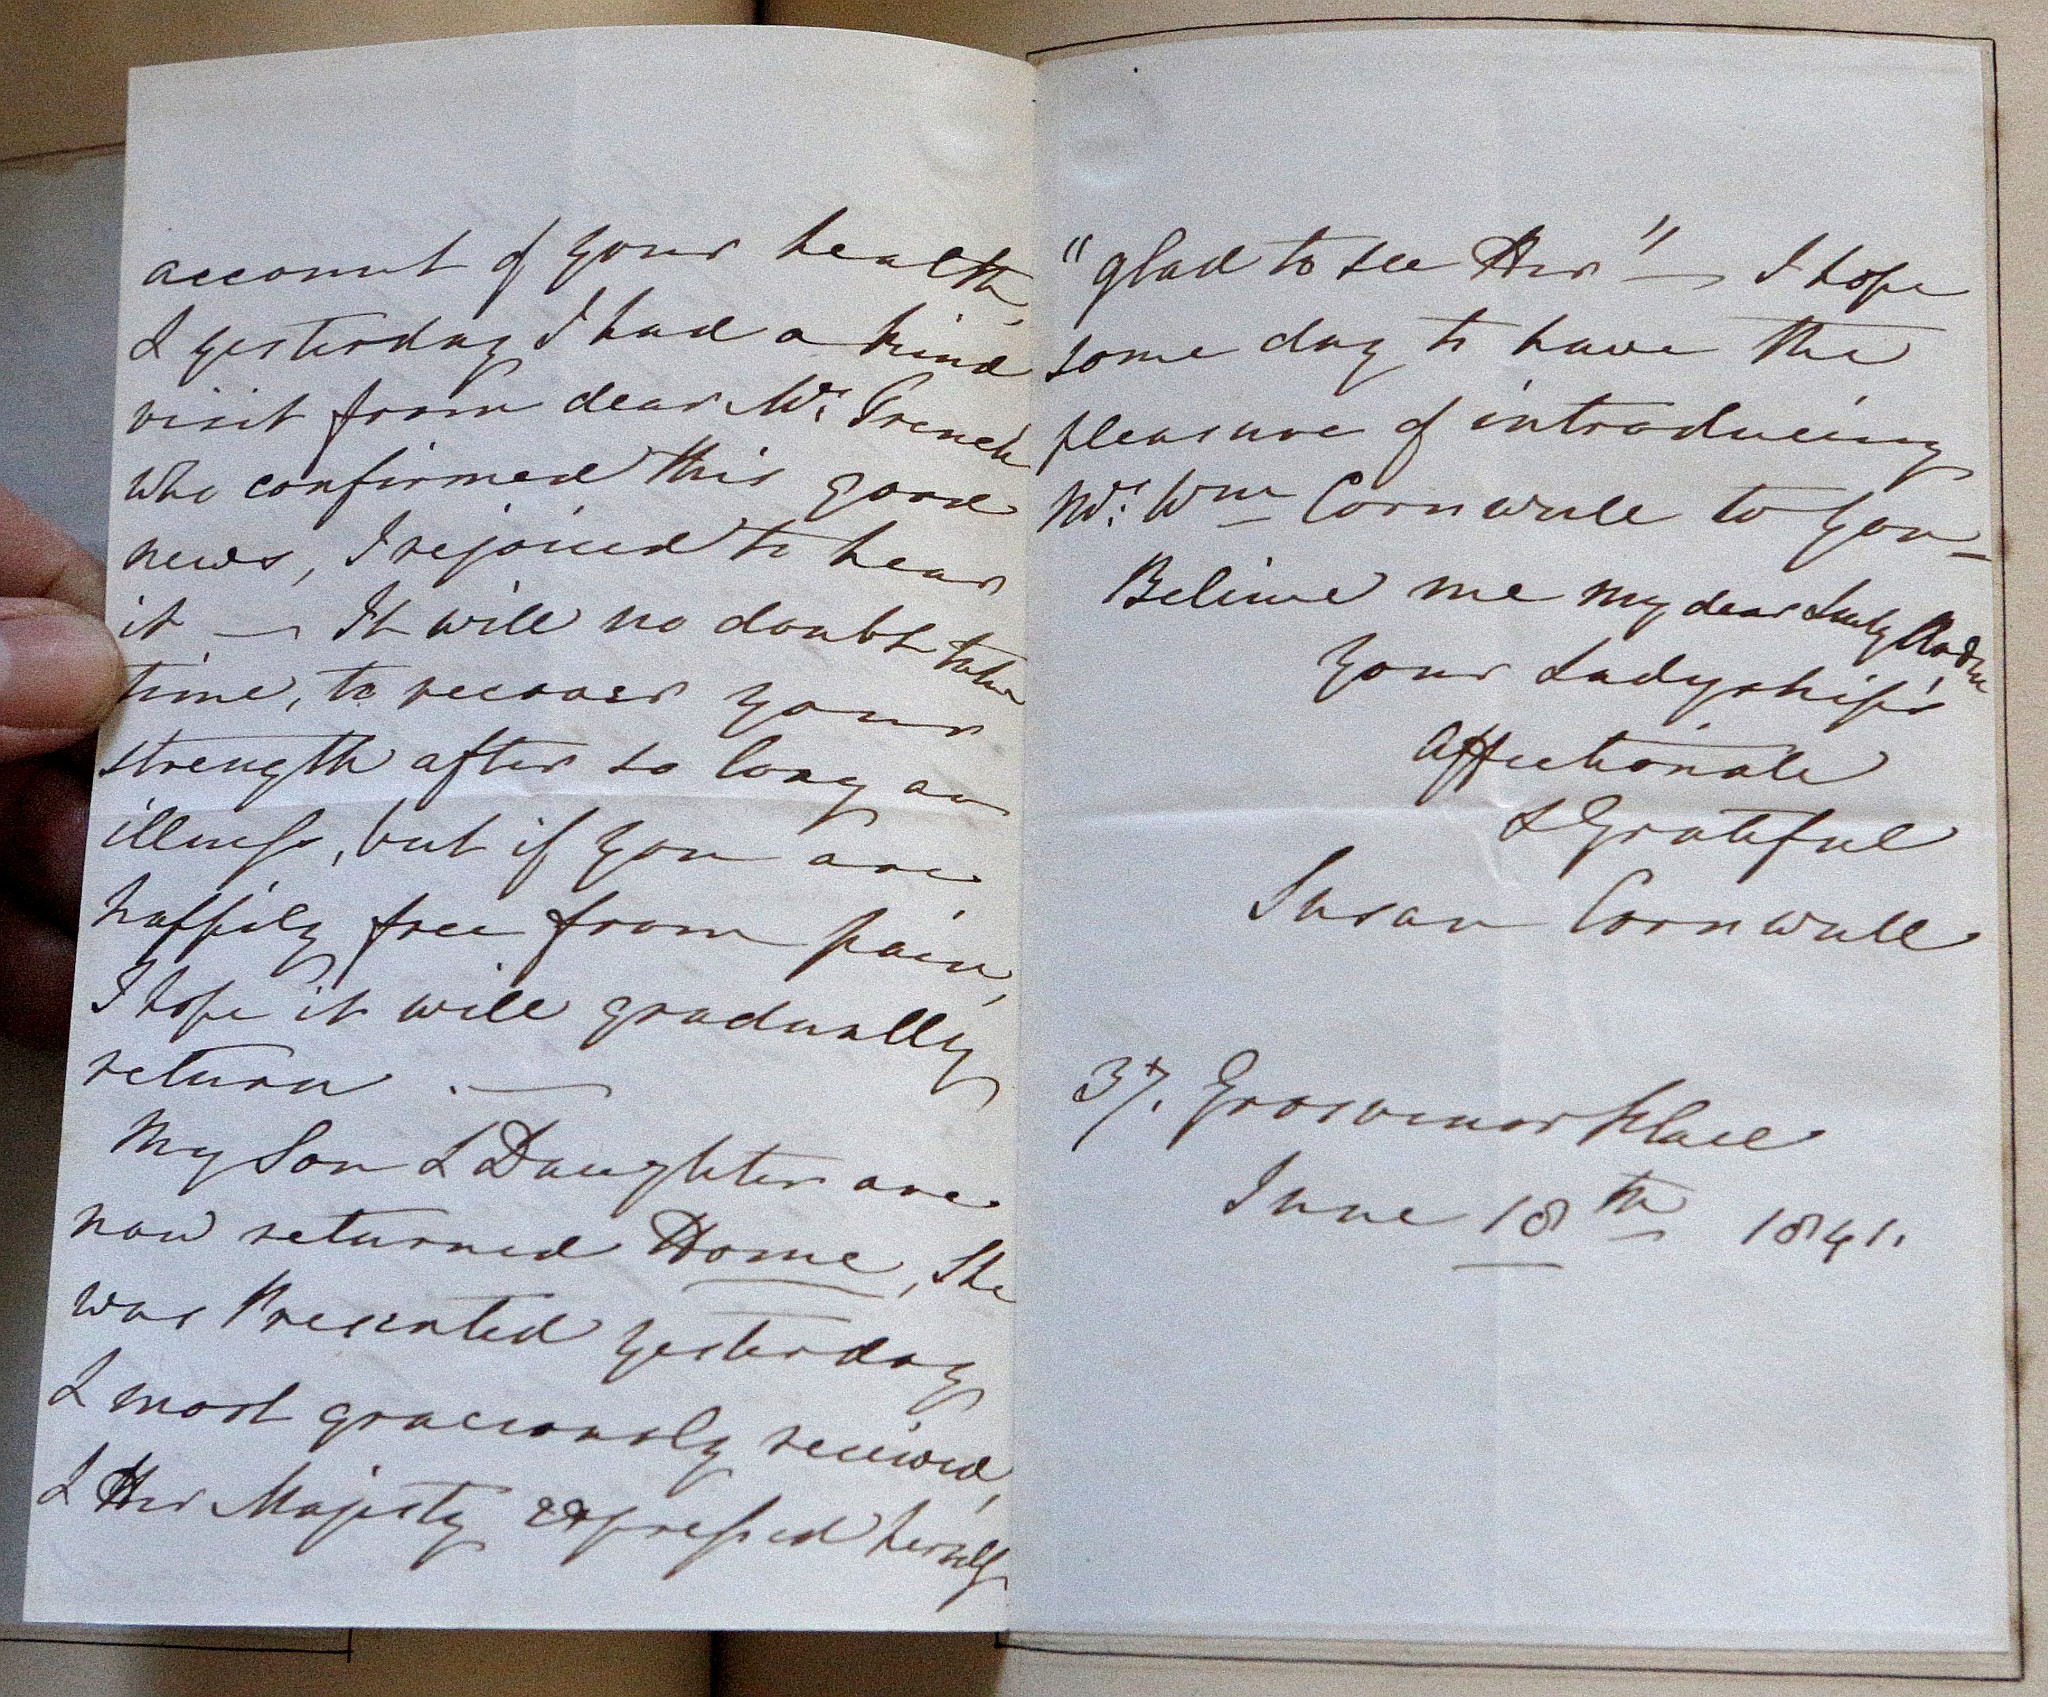 account of your health,
& yesterday I had a kind
visit from dear Mrs. French
who confirmed this good
news, I rejoiced to hear
it — It will no doubt take
time, to recover your
strength after so long an
illness, but if you are
happily free from pain,
I hope it will gradually
return . —
My Son & Daughter are
now returned Home, She
was Presented yesterday
& most graciously received,
& Her Majesty expressed herself
"glad to see Her" — I hope
some day to have the
pleasure of introducing
Mrs. Wm Cornwall to you —
Believe me my dear Lady
Your Ladyship's
Affectionate
& Grateful
Susan Cornwall
37. Grosvenor Place
June 18th 1841.